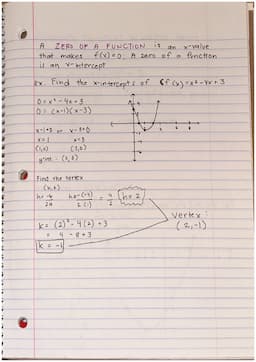 A ZERO OF A FUNCTION is an x-value
that makes f(x)=0. A zero of a function
is an x-intercept
Ex. Find the x-intercepts of f(x)=x²-4x+3
0=x²-4x+3
0=(x-1)(x-3)
x-1=0 or x-3=0
x=1 x=3
(1,0) (3,0)
Find the vertex
(h,k)
h= -b/2a h=-(-4)/2(1) = 4/2 h=2
k= (2)²-4(2)+3
= 4-8+3
k=-1
vertex
(2,-1)